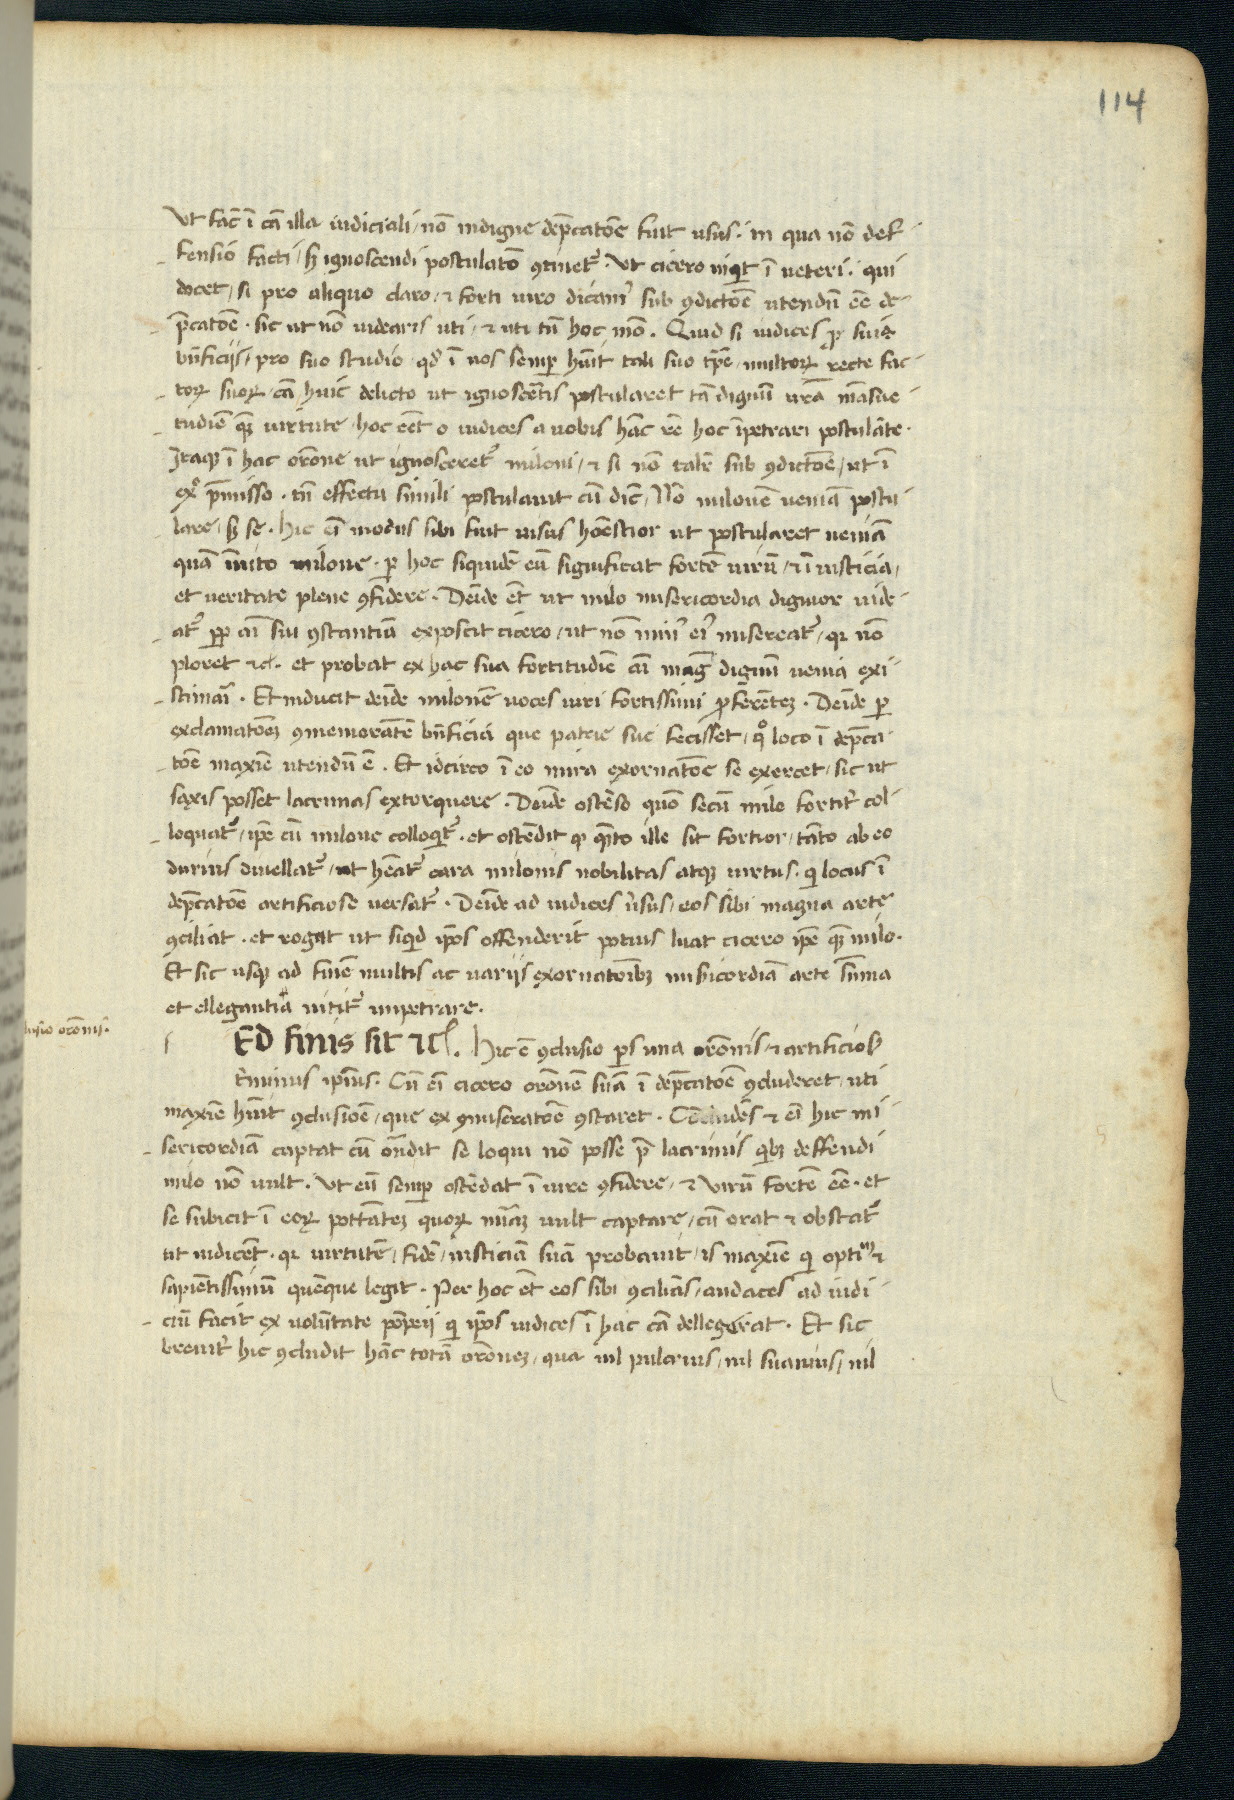 114
Ut fac̄ ī cā illa iudiciali / nō indigne dep̄catōe fuit usus. in qua nō def-
fensio facti / sꝫ ignoscendi postulatō ꝯtinet᷑. Ut cicero inq̇t ī ueteri. qui
docet / si pro aliquo claro / ⁊ forti uiro dicam᷒ sub ꝯdictōe utendū eē de-
p̄catōe. sic ut nō uidearis uti / ⁊ uti tn̄ hoc mō. Quid si iudices ꝓ suis
bn̄ficijs / pro suo studio qd̄ ī uos semꝑ hūit tali suo tp̄e / multoꝝ recte fac-
toꝝ suoꝝ / cā huic delicto ut ignoscētis postularet tā dignū ur̄a māsue-
tudiē qꝫ uirtute / hoc eēt o iudices a uobis hāc rē hoc īpetrari postulāte.
Itaqꝫ ī hac orōne ut ignosceret᷑ miloni / ⁊ si nō talē sub ꝯdictōe / ut ī
exº p̄misso. tn̄ effectu simili postulauit cū dic̄ / Nō milonē ueniā postu-
lare / sꝫ se. hic eī modus sibi fuit uisus hōestior ut postularet ueniā
quā īuito milone. ꝑ hoc siquidē eū significat fortē uirū / ⁊ ī iusticia /
et ueritate plene ꝯfidere. Deīde et̄ ut milo misericordia dignior uide-
at᷑ ꝓp aī sui ꝯstantiā exposcit cicero / ut nō min᷒ ei᷒ misereat᷑ / qꝫ nō
ploret ⁊cꝉ. et probat ex hac sua fortitudiē eū maḡ dignū uenia exi-
stimāi. Et inducit deīde milonē uoces uiri fortissimi ꝓferēteꝫ. Deīde ꝑ
exclamatōeꝫ ꝯmemorātē bn̄ficia que patrie sue fecisset / qº loco ī dep̄ca-
tōe maxīe utendū ē. Et idcirco ī eo mira exornatōe se exercet / sic ut
saxis posset lacrimas extorquere. Deīde ostēso quō secū milo fortit᷑ col-
loquat᷑ / ip̄e cū milone colloq̇t᷑. et ostēdit qꝫ qꝫto ille sit fortior / tāto ab eo
durius diuellat᷑ / ut hēat᷑ cara milonis nobilitas atqꝫ uirtus. q̇ locus ī
dep̄catōe artificiose uersat᷑. Deīde ad iudices u᷑sus / eos sibi magna arte
ꝯciliat. et rogat ut siqͥd ip̄os offenderit potius luat cicero ip̄e qꝫ milo.
Et sic usqꝫ ad finē multis ac uarijs exornatōibꝫ mis̄icordiā arte sūma
et ellegantia nitit᷑ impetrare.
ED finis sit ⁊cꝉ. Hic ē ꝯclusio ꝑs una orōnis / ⁊ artificios᷒
t᷑minus ip̄ius. Cū eī cicero orōnē suā ī dep̄catōe ꝯcluderet / uti
maxīe hūit ꝯclusiōe / que ex ꝯmiseratōe ꝯstaret. Cōcludēs ⁊ eī hic mi-
sericordiā captat cū on̄dit se loqui nō posse p̄ lacrimis qͥbꝫ deffendi
milo nō uult. Ut eū semꝑ ostēdat ī iure ꝯfidere / ⁊ uirū fortē eē. et
se subicit ī eoꝝ pot̄tateꝫ quoꝝ mīaꝫ uult captare / cū orat ⁊ obstat᷑
ut iudicēt. qꝫ uirtutē / fidē / iusticiā suā probauit / is maxīe q̇ optim᷒ ⁊
sapiētissimū quēque legit. Per hoc et̄ eos sibi ꝯciliās / audaces ad iudi-
ciū facit ex uolūtate pōpeij q̇ ip̄os iudices ī hac cā dellegerat. Et sic
breuit᷑ hic ꝯcludit hāc totā orōneꝫ / qua nil pulcrius / nil suauius / nil
orōnis.